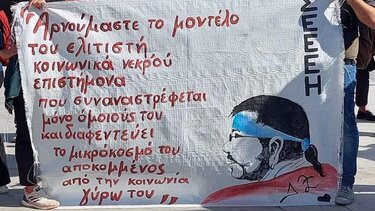 "Αρνούμαστε το μοντέλο
του ελιτιστή
κοινωνικά νεκρού
επιστήμονα
που συναναστρέφεται
μόνο όμοιους του
και διαφεντεύει
το μικρόκοσμό του
αποκομμένος
από την κοινωνία
γύρω του"
ΣΕΕΕΗ